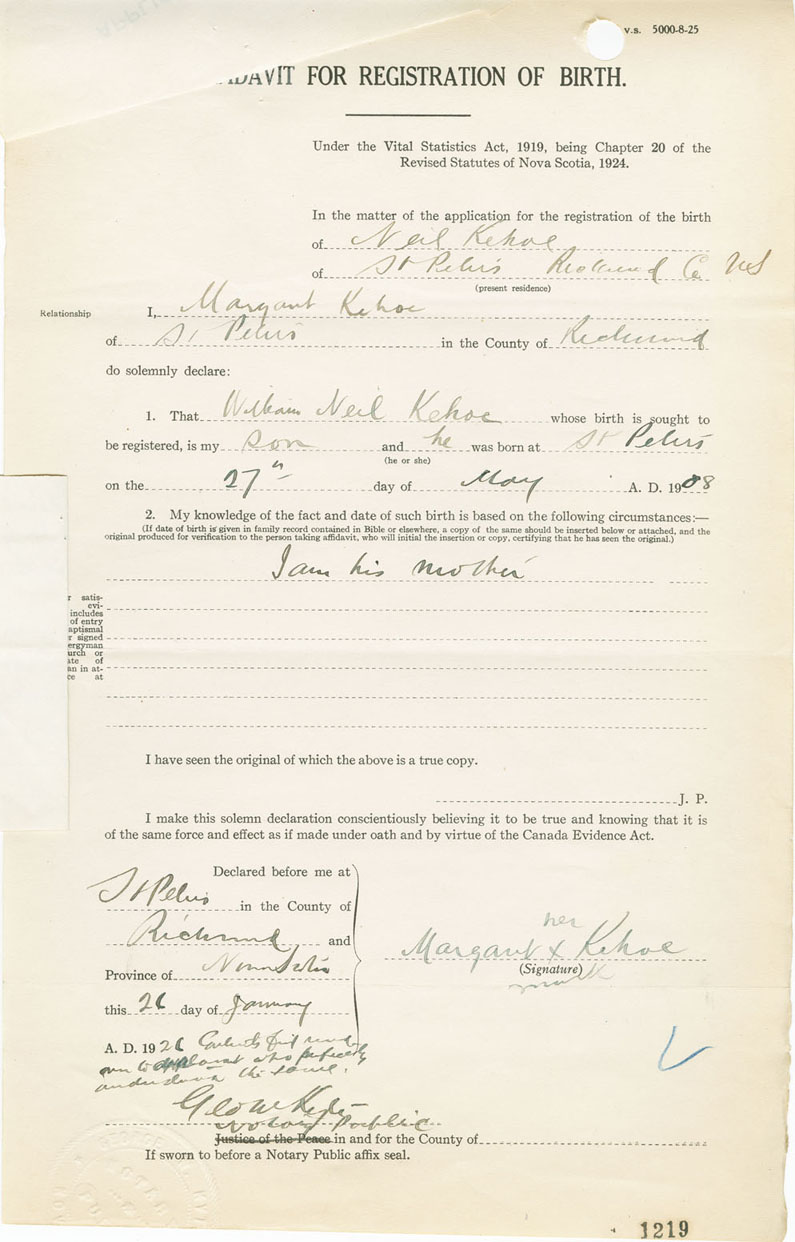 v.s. 5000-8-25
IDAVIT FOR REGISTRATION OF BIRTH.
Under the Vital Statistics Act, 1919, being Chapter 20 of the
Revised Statutes of Nova Scotia, 1924.
In the matter of the application for the registration of the birth
of Neil Kehoe
of St Peters Richmond Co. N.S
(present residence)
Relationship
I, Margaret Kehoe
of St Peters in the County of Richmond
do solemnly declare:
1. That William Neil Kehoe whose birth is sought to
be registered, is my son and he was born at St Peters
(he or she)
on the 27th day of May A. D. 1908
2. My knowledge of the fact and date of such birth is based on the following circumstances:—
(If date of birth is given in family record contained in Bible or elsewhere, a copy of the same should be inserted below or attached, and the
original produced for verification to the person taking affidavit, who will initial the insertion or copy, certifying that he has seen the original.)
I am his mother
r satis-
evi-
includes
of entry
aptismal
r signed
ergyman
urch or
ate of
an in at-
ce at
I have seen the original of which the above is a true copy.
J. P.
I make this solemn declaration conscientiously believing it to be true and knowing that it is
of the same force and effect as if made under oath and by virtue of the Canada Evidence Act.
Declared before me at
St Peters in the County of
Richmond and
Province of Nova Scotia
this 26 day of January
A. D. 1926 Contents first read
over to who perfectly
understood the same.
her
Margaret x Kehoe
(Signature)
mark
Notary Public
Justice of the Peace in and for the County of
If sworn to before a Notary Public affix seal.
1219